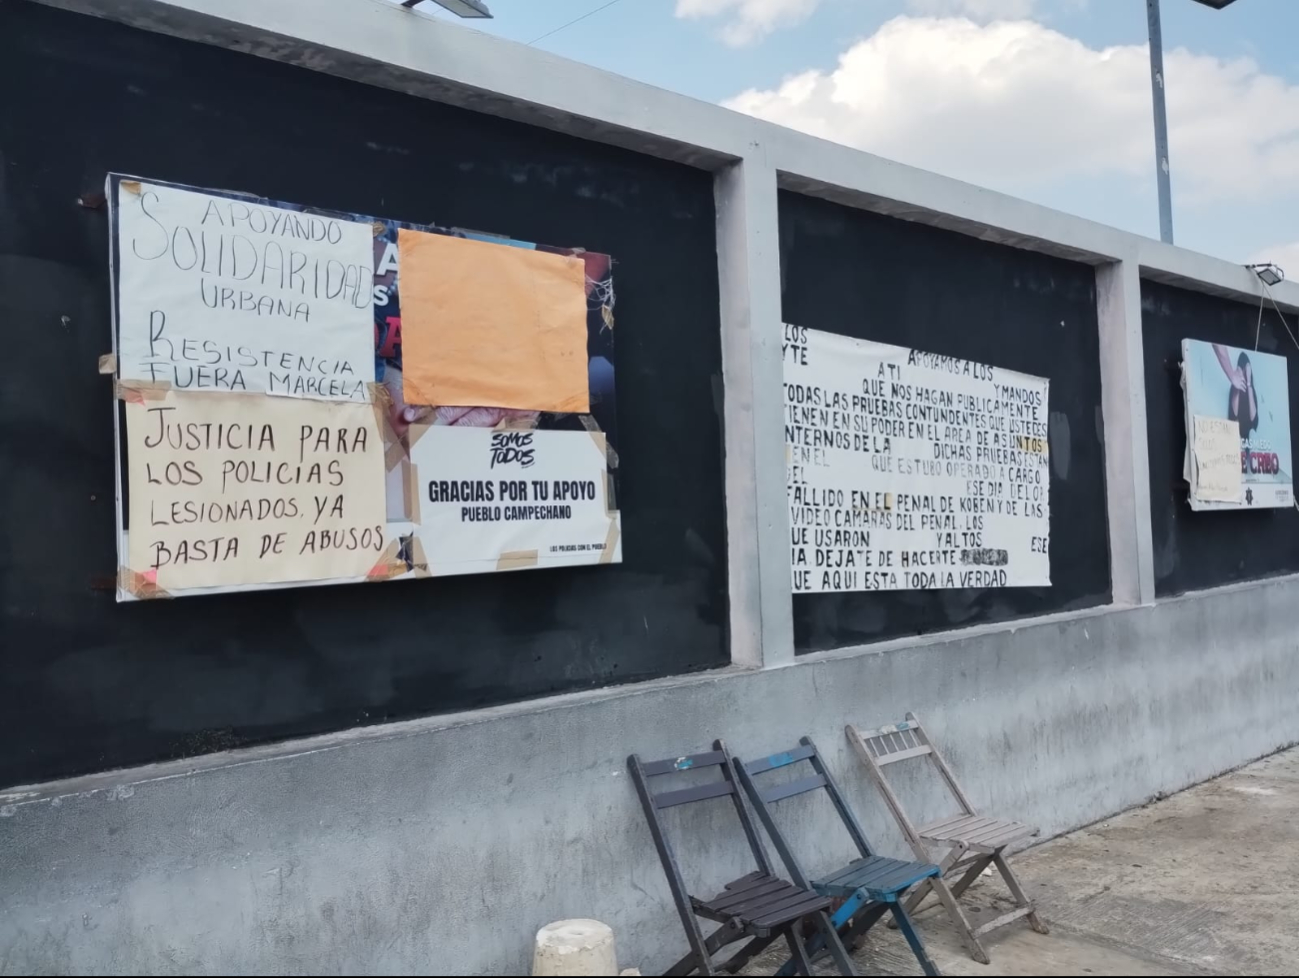 APOYANDO
SOLIDARIDAD
URBANA
RESISTENCIA
FUERA MARCELA
JUSTICIA PARA
LOS POLICIAS
LESIONADOS, YA
BASTA DE ABUSOS
SOMOS
TODOS
GRACIAS POR TU APOYO
PUEBLO CAMPECHANO
LOS POLICIAS CON EL PUEBLO
LOS
YTE APOYAMOS A LOS
A TI Y MANDOS
QUE NOS HAGAN PUBLICAMENTE
TODAS LAS PRUEBAS CONTUNDENTES QUE USTEDES
TIENEN EN SU PODER EN EL AREA DE ASUNTOS
NTERNOS DE LA DICHAS PRUEBAS ESTAN
EN EL QUE ESTUBO OPERADO A CARGO
EL ESE DIA DEL OP
FALLIDO EN EL PENAL DE KOBEN Y DE LAS
VIDEO CAMARAS DEL PENAL. LOS
UE USARON Y ALTOS ESE
IA DEJATE DE HACERTE
UE AQUI ESTA TODA LA VERDAD